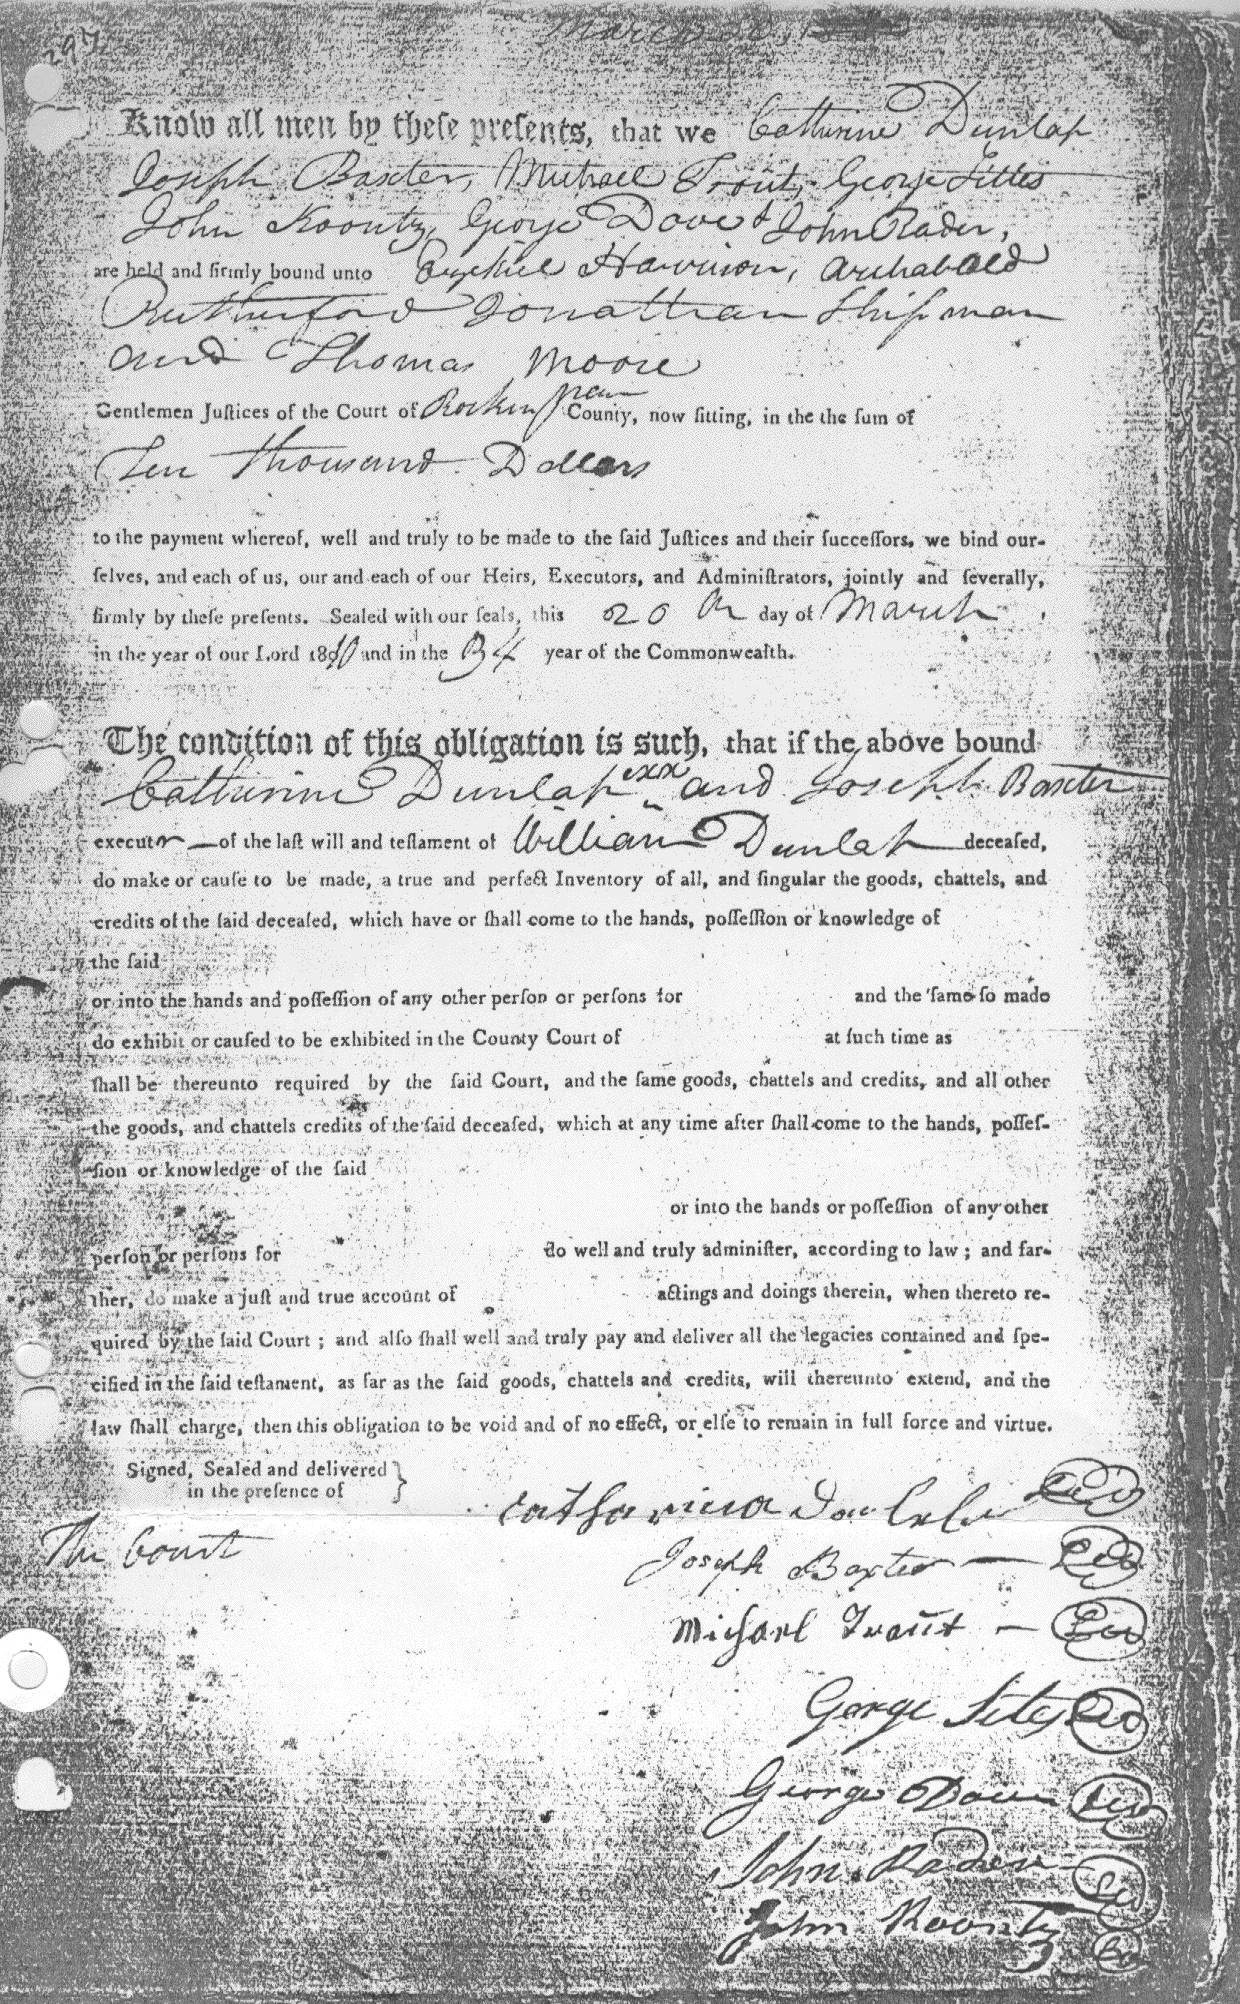 297
March 20, 18
Know all men by theſe preſents, that we Catherine Dunlap
Joseph Baxter, Michael Trout, George Sittes
John Koontz, George Dove & John Rader,
are held and firmly bound unto Ezekiel Harrison, Archabald
Rutherford Jonathan Shipman
and Thomas Moore
Gentlemen Juſtices of the Court of Rockingham County, now ſitting, in the the ſum of
Ten thousand Dollars
to the payment whereof, well and truly to be made to the ſaid Juſtices and their ſucceſſors, we bind our-
ſelves, and each of us, our and each of our Heirs, Executors, and Adminiſtrators, jointly and ſeverally,
firmly by theſe preſents. Sealed with our ſeals, this 20th day of March
in the year of our Lord 1810 and in the 34 year of the Commonwealth.
The condition of this obligation is such, that if the above bound
Catherine Dunlap exx and Joseph Baxter
executor of the laſt will and teſtament of William Dunlap deceaſed,
do make or cauſe to be made, a true and perfect Inventory of all, and ſingular the goods, chattels, and
credits of the ſaid deceaſed, which have or ſhall come to the hands, poſſeſſion or knowledge of
the ſaid
or into the hands and poſſeſſion of any other perſon or perſons for and the ſame ſo made
do exhibit or cauſed to be exhibited in the County Court of at ſuch time as
ſhall be thereunto required by the ſaid Court, and the ſame goods, chattels and credits, and all other
the goods, and chattels credits of the ſaid deceaſed, which at any time after ſhall come to the hands, poſſeſ-
ſion or knowledge of the ſaid
or into the hands or poſſeſſion of any other
perſon or perſons for do well and truly adminiſter, according to law ; and far-
ther, do make a juſt and true account of actings and doings therein, when thereto re-
quired by the ſaid Court ; and alſo ſhall well and truly pay and deliver all the legacies contained and ſpe-
cified in the ſaid teſtament, as far as the ſaid goods, chattels and credits, will thereunto extend, and the
law ſhall charge, then this obligation to be void and of no effect, or elſe to remain in full force and virtue.
Signed, Sealed and delivered }
in the preſence of
Catharina
The Court
Joseph Baxter
Michael Traut
George Sites
George Dove
John Rader
John Koontz